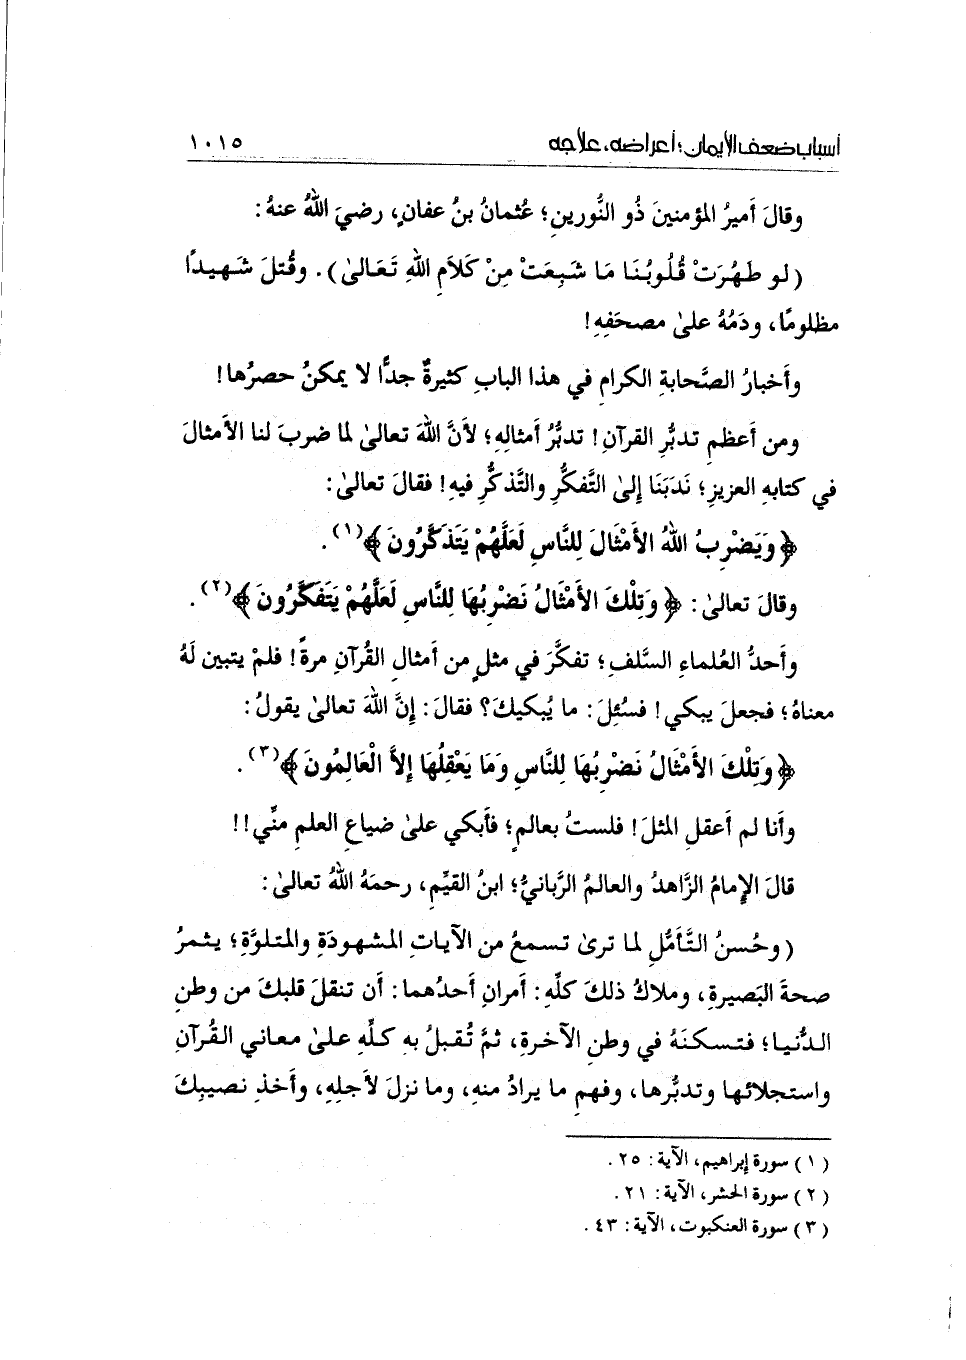 أسباب ضعف الإيمان؛ أعراضه، علاجه ١٠١٥
وقالَ أميرُ المؤمنينَ ذُو النُّورينِ؛ عُثمانُ بنُ عفانٍ، رضيَ اللهُ عنهُ:
(لو طَهُرَتْ قُلُوبُنَا مَا شَبِعَتْ مِنْ كَلَامِ اللهِ تَعَالىٰ). وقُتلَ شهيدًا
مظلومًا، ودَمُهُ علىٰ مصحَفِهِ!
وأخبارُ الصَّحابةِ الكرامِ في هذا البابِ كثيرةٌ جدًّا لا يمكنُ حصرُها!
ومن أعظمِ تدبُّرِ القرآنِ! تدبُّرُ أمثالِهِ؛ لأنَّ اللهَ تعالىٰ لما ضربَ لنا الأمثالَ
في كتابهِ العزيزِ؛ نَدَبَنَا إلىٰ التَّفكُّرِ والتَّذكُّرِ فيهِ! فقالَ تعالىٰ:
﴿وَيَضْرِبُ اللهُ الأَمْثَالَ لِلنَّاسِ لَعَلَّهُمْ يَتَذَكَّرُونَ﴾(١).
وقالَ تعالىٰ: ﴿وَتِلْكَ الأَمْثَالُ نَضْرِبُهَا لِلنَّاسِ لَعَلَّهُمْ يَتَفَكَّرُونَ﴾(٢).
وأحدُ العُلماءِ السَّلفِ؛ تفكَّرَ في مثلٍ من أمثالِ القُرآنِ مرةً! فلمْ يتبين لَهُ
معناهُ؛ فجعلَ يبكي! فسُئِلَ: ما يُبكيكَ؟ فقالَ: إنَّ اللهَ تعالىٰ يقولُ:
﴿وَتِلْكَ الأَمْثَالُ نَضْرِبُهَا لِلنَّاسِ وَمَا يَعْقِلُهَا إِلاَّ الْعَالِمُونَ﴾(٣).
وأنا لم أعقلِ المثلَ! فلستُ بعالمٍ؛ فأبكي علىٰ ضياعِ العلمِ منِّي!!
قالَ الإمامُ الزَّاهدُ والعالمُ الرَّبانيُّ؛ ابنُ القيِّمِ، رحمَهُ اللهُ تعالىٰ:
(وحُسنُ التَّأمُّلِ لما ترىٰ تسمعُ من الآياتِ المشهودَةِ والمتلوَّةِ؛ يثمرُ
صحةَ البَصيرةِ، وملاكُ ذلكَ كلِّهِ: أمرانِ أحدُهما: أن تنقلَ قلبكَ من وطنِ
الدُّنيا؛ فتسكنَهُ في وطنِ الآخرةِ، ثمَّ تُقبلُ بهِ كلِّهِ علىٰ معاني القُرآنِ
واستجلائها وتدبُّرها، وفهمِ ما يرادُ منه، وما نزلَ لأجلِهِ، وأخذِ نصيبِكَ
(١) سورة إبراهيم، الآية: ٢٥.
(٢) سورة الحشر، الآية: ٢١.
(٣) سورة العنكبوت، الآية: ٤٣.